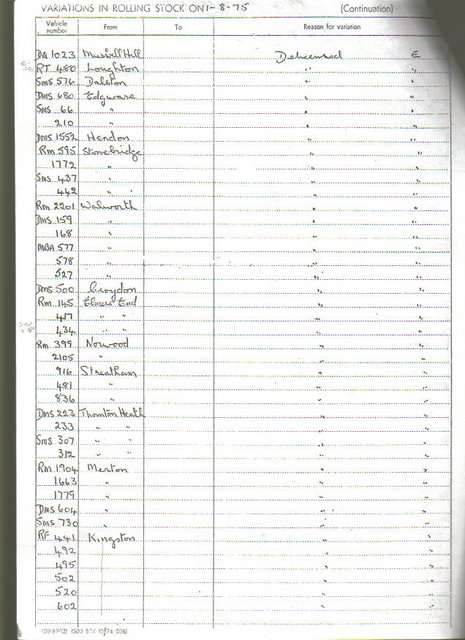 VARIATIONS IN ROLLING STOCK ON 1-8-75 (Continuation)
Vehicle number From To Reason for variation
DA 1023 Muswell Hill Delicensed E
RT 480 Loughton " "
SMS 576 Dalston " "
DMS 680 Edgware " "
SMS 66 " " "
210 " " "
DMS 1552 Hendon " "
RM 595 Stonebridge " "
1772 " " "
SMS 437 " " "
442 " " "
RM 2201 Walworth " "
DMS 159 " " "
168 " " "
MBA 577 " " "
578 " " "
527 " " "
DMS 500 Croydon " "
RM 145 Elmers End " "
417 " " " "
434 " " " "
RM 399 Norwood " "
2105 " " "
916 Streatham " "
481 " " "
836 " " "
DMS 223 Thornton Heath " "
233 " " " "
SMS 307 " " " "
312 " " " "
RM 1904 Merton " "
1663 " " "
1779 " " "
DMS 604 " " "
SMS 730 " " "
RF 441 Kingston " "
492 " "
495 " "
502 " "
520 " "
602 " "